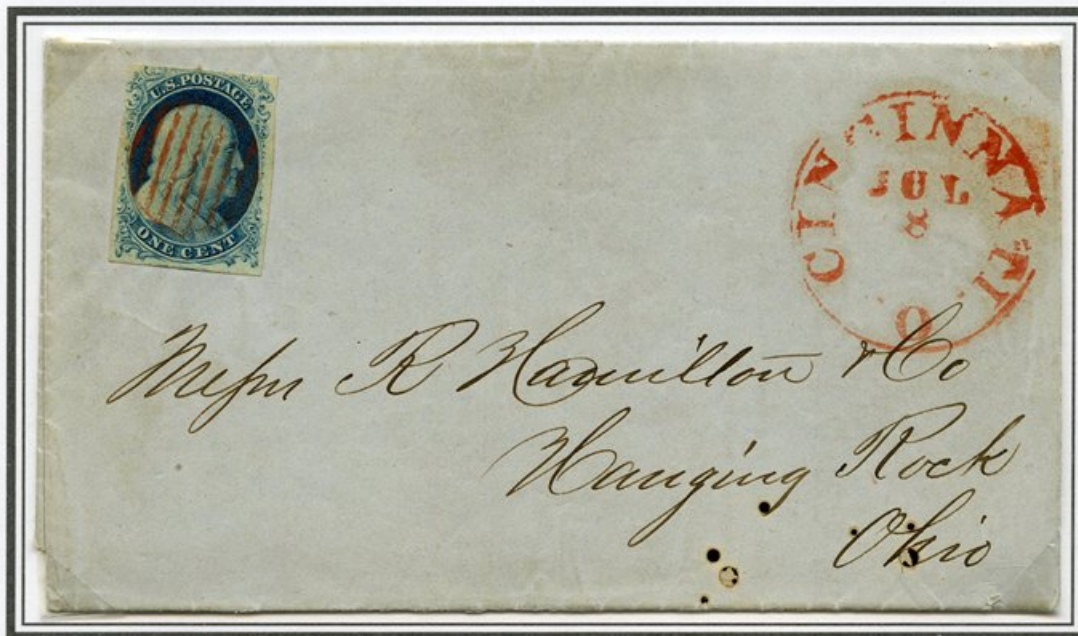 U.S. POSTAGE
ONE CENT
CINCINNATI
JUL
8
O
Messrs R Hamilton & Co
Hanging Rock
Ohio